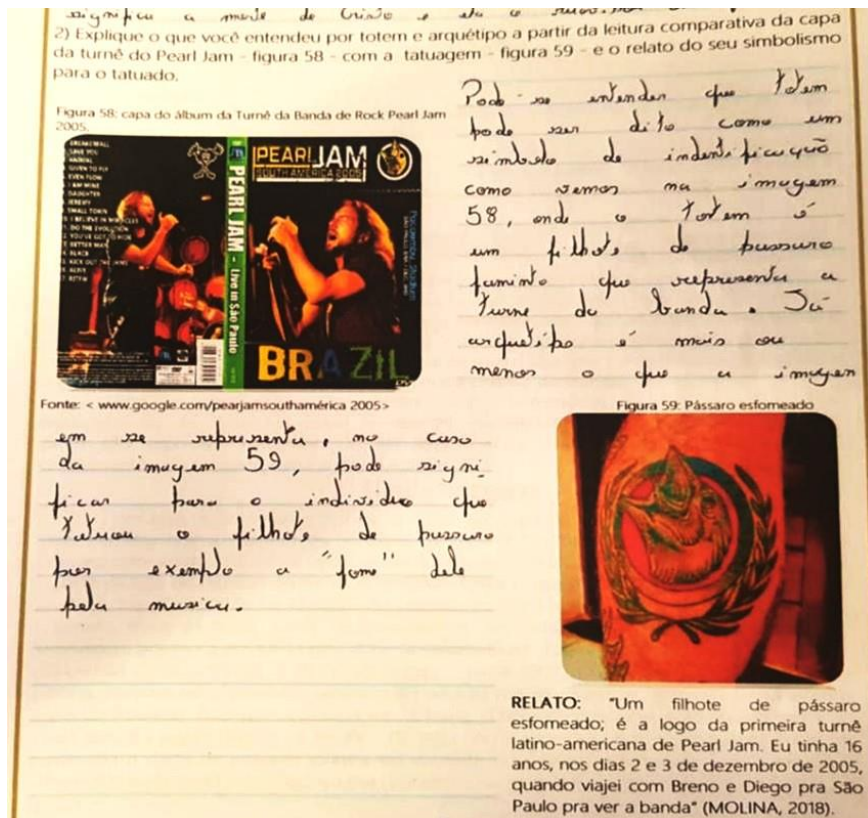 significa a mente de Cristo e ela o
2) Explique o que você entendeu por totem e arquétipo a partir da leitura comparativa da capa
da turnê do Pearl Jam - figura 58 - com a tatuagem - figura 59 - e o relato do seu simbolismo
para o tatuado.
Figura 58: capa do álbum da Turnê da Banda de Rock Pearl Jam
2005.
BREAKERFALL
SAVE YOU
ANIMAL
GIVEN TO FLY
EVEN FLOW
I AM MINE
DAUGHTER
JEREMY
SMALL TOWN
I BELIEVE IN MIRACLES
DO THE EVOLUTION
BETTER MAN
BLACK
KICK OUT THE JAMS
ALIVE
PEARL JAM - Live in São Paulo
PEARL JAM
SOUTH AMERICA 2005
Pacaembu Stadium
BRAZIL
Fonte: < www.google.com/pearjamsouthamérica 2005>
Pode-se entender que totem
pode ser dito como um
simbolo de indentificação
como vemos na imagem
58, onde o totem é
um filhote de passaro
faminto que representa a
turne da banda. Já
arquetipo é mais ou
menos o que a imagem
em se representa, no caso
da imagem 59, pode signi
ficar para o individuo que
tatuou o filhote de passaro
por exemplo a "fome" dele
pela musica.
Figura 59: Pássaro esfomeado
RELATO: "Um filhote de pássaro
esfomeado; é a logo da primeira turnê
latino-americana de Pearl Jam. Eu tinha 16
anos, nos dias 2 e 3 de dezembro de 2005,
quando viajei com Breno e Diego pra São
Paulo pra ver a banda" (MOLINA, 2018).